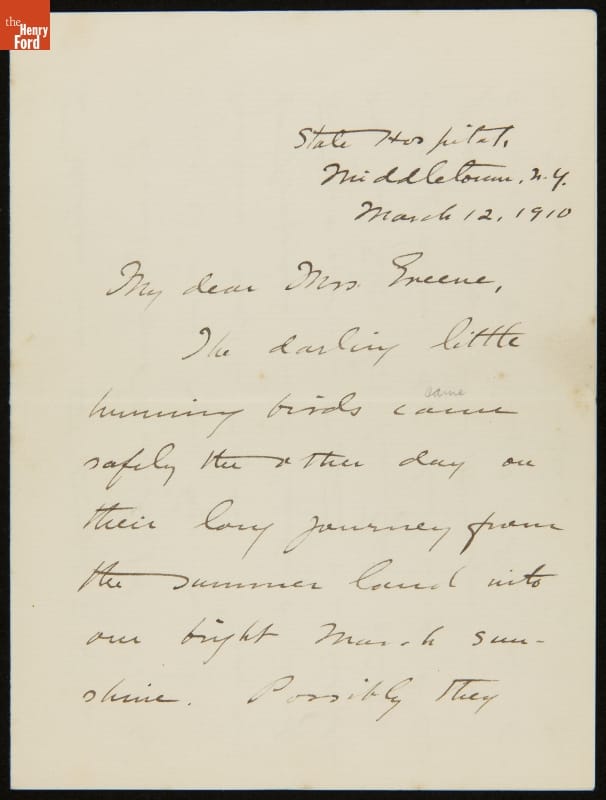 the
Henry
Ford
State Hospital,
Middletown, N.Y.
March 12, 1910
My dear Mrs. Greene,
The darling little
came
humming birds came
safely the other day on
their long journey from
the summer land into
our bright March sun-
shine. Possibly they